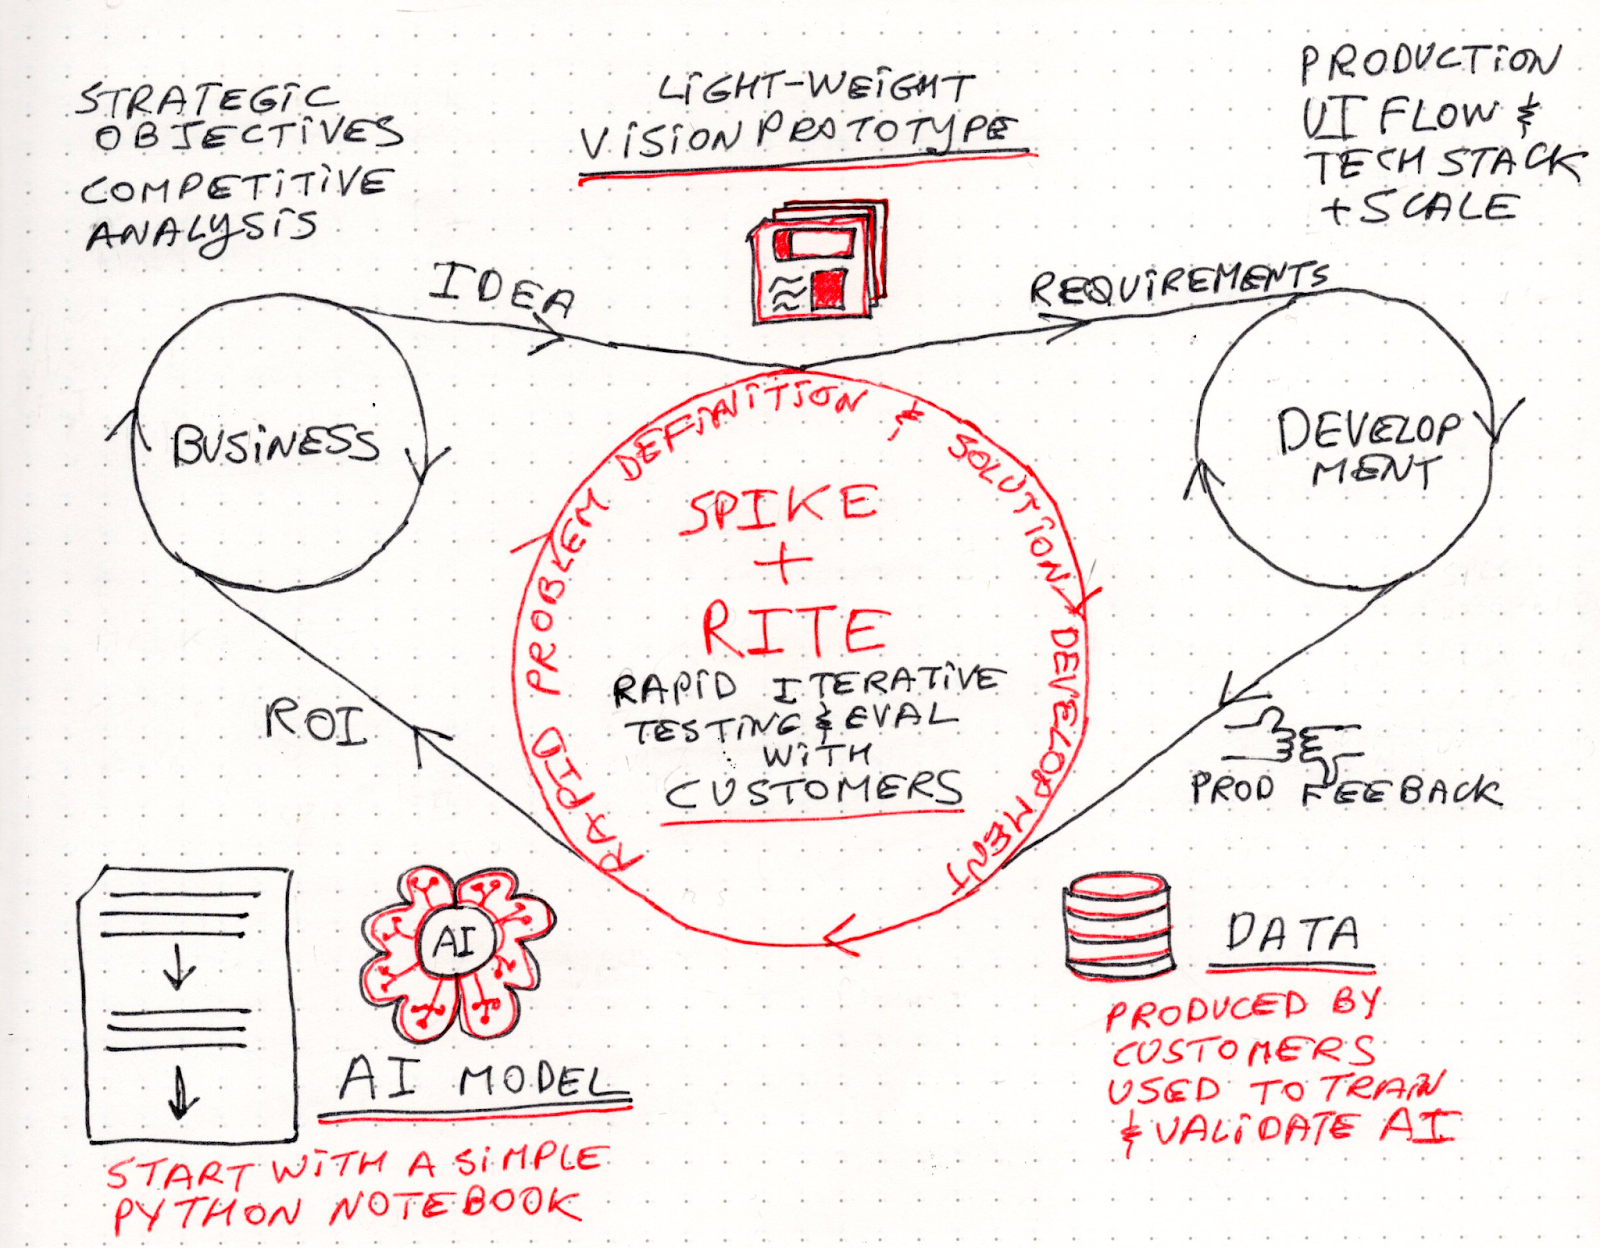 STRATEGIC
OBJECTIVES
COMPETITIVE
ANALYSIS
LIGHT-WEIGHT
VISION PROTOTYPE
PRODUCTION
UI FLOW &
TECH STACK
+ SCALE
IDEA
REQUIREMENTS
BUSINESS
RAPID PROBLEM DEFINITION & SOLUTION DEVELOPMENT
SPIKE
+
RITE
RAPID ITERATIVE
TESTING & EVAL
WITH
CUSTOMERS
DEVELOP
MENT
ROI
PROD FEEBACK
AI
AI MODEL
START WITH A SIMPLE
PYTHON NOTEBOOK
DATA
PRODUCED BY
CUSTOMERS
USED TO TRAIN
& VALIDATE AI